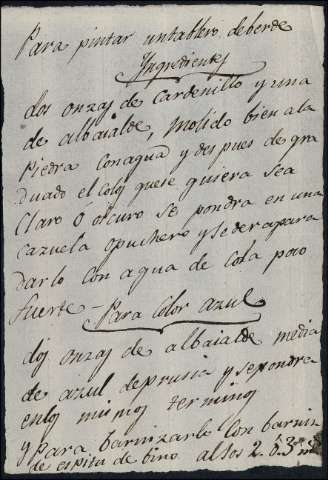 Para pintar untablero deberde
Yngredientes
dos onzas de Cardenillo y una
de albaialde, Molido bien ala
Piedra Conagua y despues de gra
duado el Color quese quiera sea
Claro ó oscuro se pondra en una
Cazuela opuchero y se
darlo Con agua de Cola poco
fuerte - Para Color azul
dos onzas de albaialde media
de azul deprusia y sepondra
enlos mismos terminos
y para barnizarlo Con barniz
de espitu de bino alos 2. ó 3.